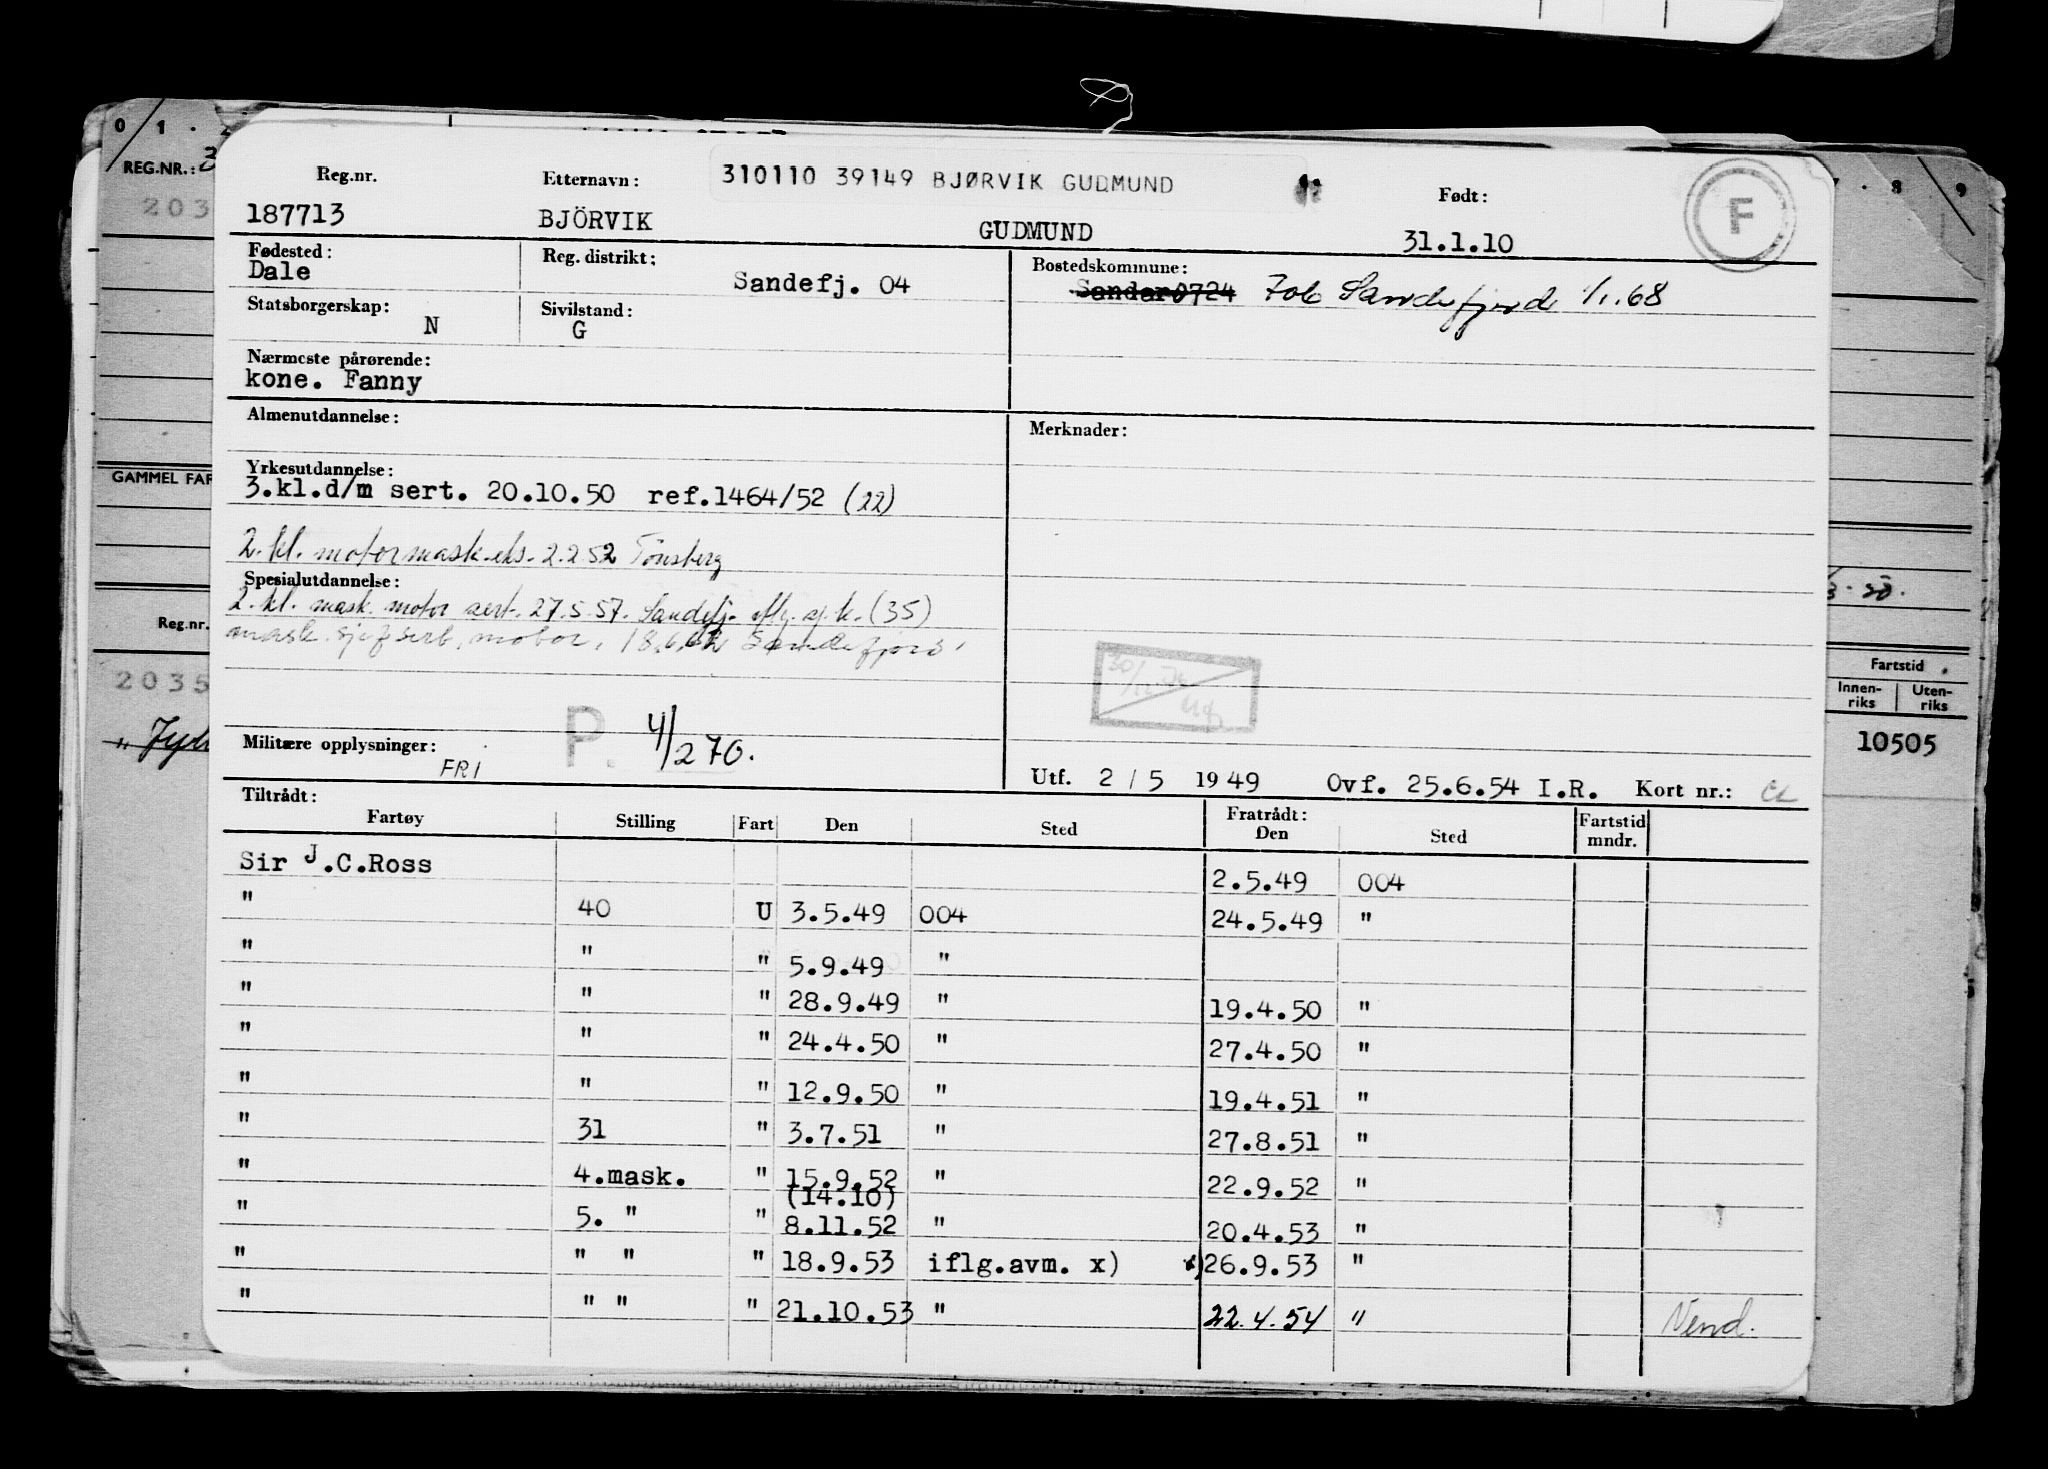 0 1 . 2
REG.NR.: 3
203
GAMMEL FAR
Reg.nr.
2035
8 . 9
Fartstid
Innen-riks Uten-riks
10505
Reg.nr. Etternavn: 310110 39149 BJØRVIK GUDMUND Født: F
187713 BJÖRVIK GUDMUND 31.1.10
Fødested: Reg. distrikt: Bostedskommune:
Dale Sandefj. 04 Sandar 0724 706 Sandefjord 1/1.68
Statsborgerskap: Sivilstand:
N G
Nærmeste pårørende:
kone. Fanny
Almenutdannelse: Merknader:
Yrkesutdannelse:
3.kl.d/m sert. 20.10.50 ref.1464/52 (22)
2. kl. motormask.eks. 2.2.52 Tönsberg
Spesialutdannelse:
2. kl. mask. motor sert. 27.5.57. Sandefj. (35)
mask.sjefsert. motor, 18.6.62 Sandefjord
30/12
P. 4/270.
Militære opplysninger: FRI
Utf. 2 / 5 1949 Ovf. 25.6.54 I.R. Kort nr.:
Tiltrådt: Fratrådt:
Fartøy Stilling Fart Den Sted Den Sted Fartstid mndr.
Sir J.C.Ross 2.5.49 004
" 40 U 3.5.49 004 24.5.49 "
" " " 5.9.49 "
" " " 28.9.49 " 19.4.50 "
" " " 24.4.50 " 27.4.50 "
" " " 12.9.50 " 19.4.51 "
" 31 " 3.7.51 " 27.8.51 "
" 4.mask. " 15.9.52 " 22.9.52 "
(14.10)
" 5. " " 8.11.52 " 20.4.53 "
" " " " 18.9.53 iflg.avm. x) x)26.9.53 "
" " " " 21.10.53 " 22.4.54 " Vend.